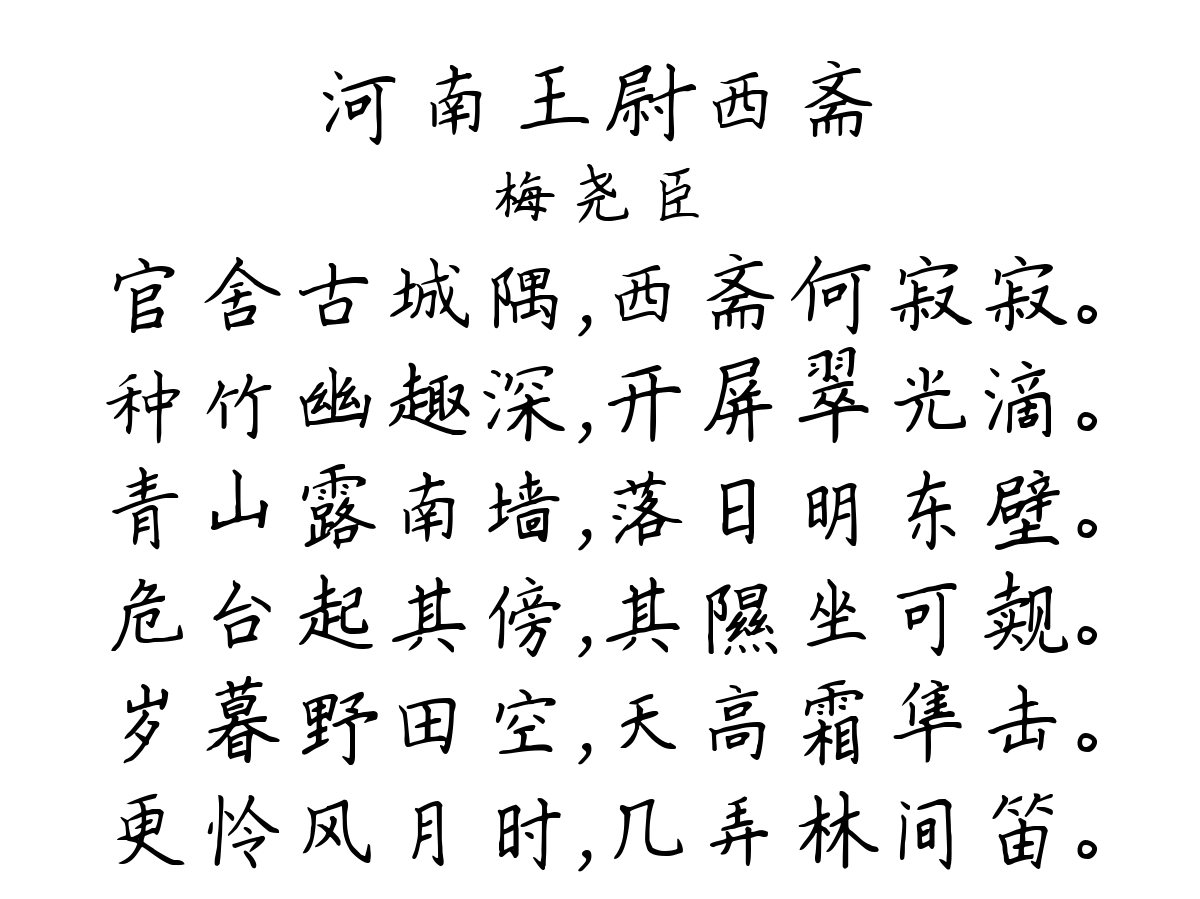 河南王尉西斋
梅尧臣
官舍古城隅,西斋何寂寂。
种竹幽趣深,开屏翠光滴。
青山露南墙,落日明东壁。
危台起其傍,其隰坐可觌。
岁暮野田空,天高霜隼击。
更怜风月时,几弄林间笛。